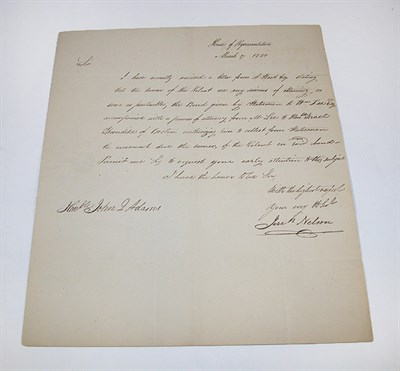 House of Representatives
March 9 1820
Sir
I have recently received a letter from Wm stating
that the owner of the Patent are very anxious of obtaining, as
soon as practicable, the Bond given by Haterman to Wm Lee Esq
accompanied with a power of attorney from Mr Lee to Israel
Thorndike of Boston authorizing him to collect from Haterman
the amount due the owners of the Patent on said bond
Permit me Sir to request your early attention to this subject
I have the honor to be Sir
With the highest respect
Your very Ob St
Jere h Nelson
Honble John Q Adams